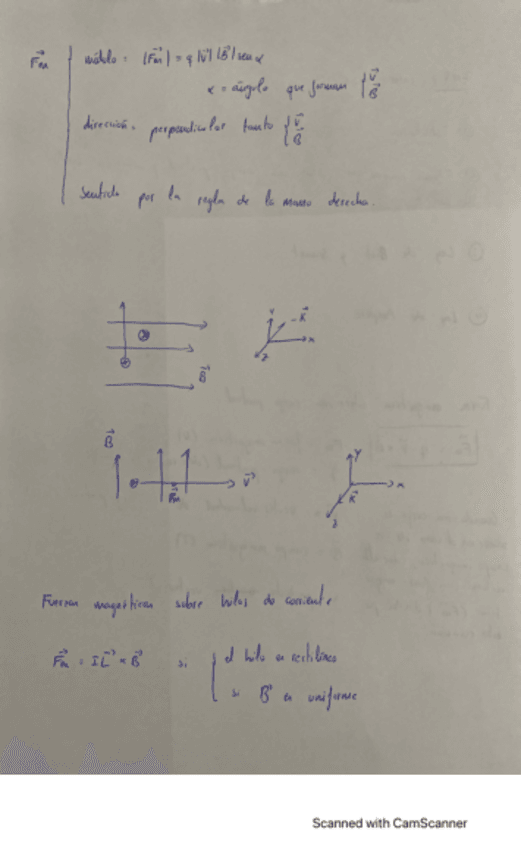 F⃗m
módulo = |F⃗m| = q |v⃗| |B⃗| sen α
α = ángulo que forman { v⃗ B⃗
dirección. perpendicular tanto { v⃗ B⃗
Sentido por la regla de la mano derecha.
B⃗
y -K⃗ x z
B⃗
F⃗m v⃗
y x K⃗ z
Fuerzas magnéticas sobre hilos de corriente
F⃗m = I L⃗ × B⃗ si { el hilo es rectilíneo
si B⃗ es uniforme
Scanned with CamScanner